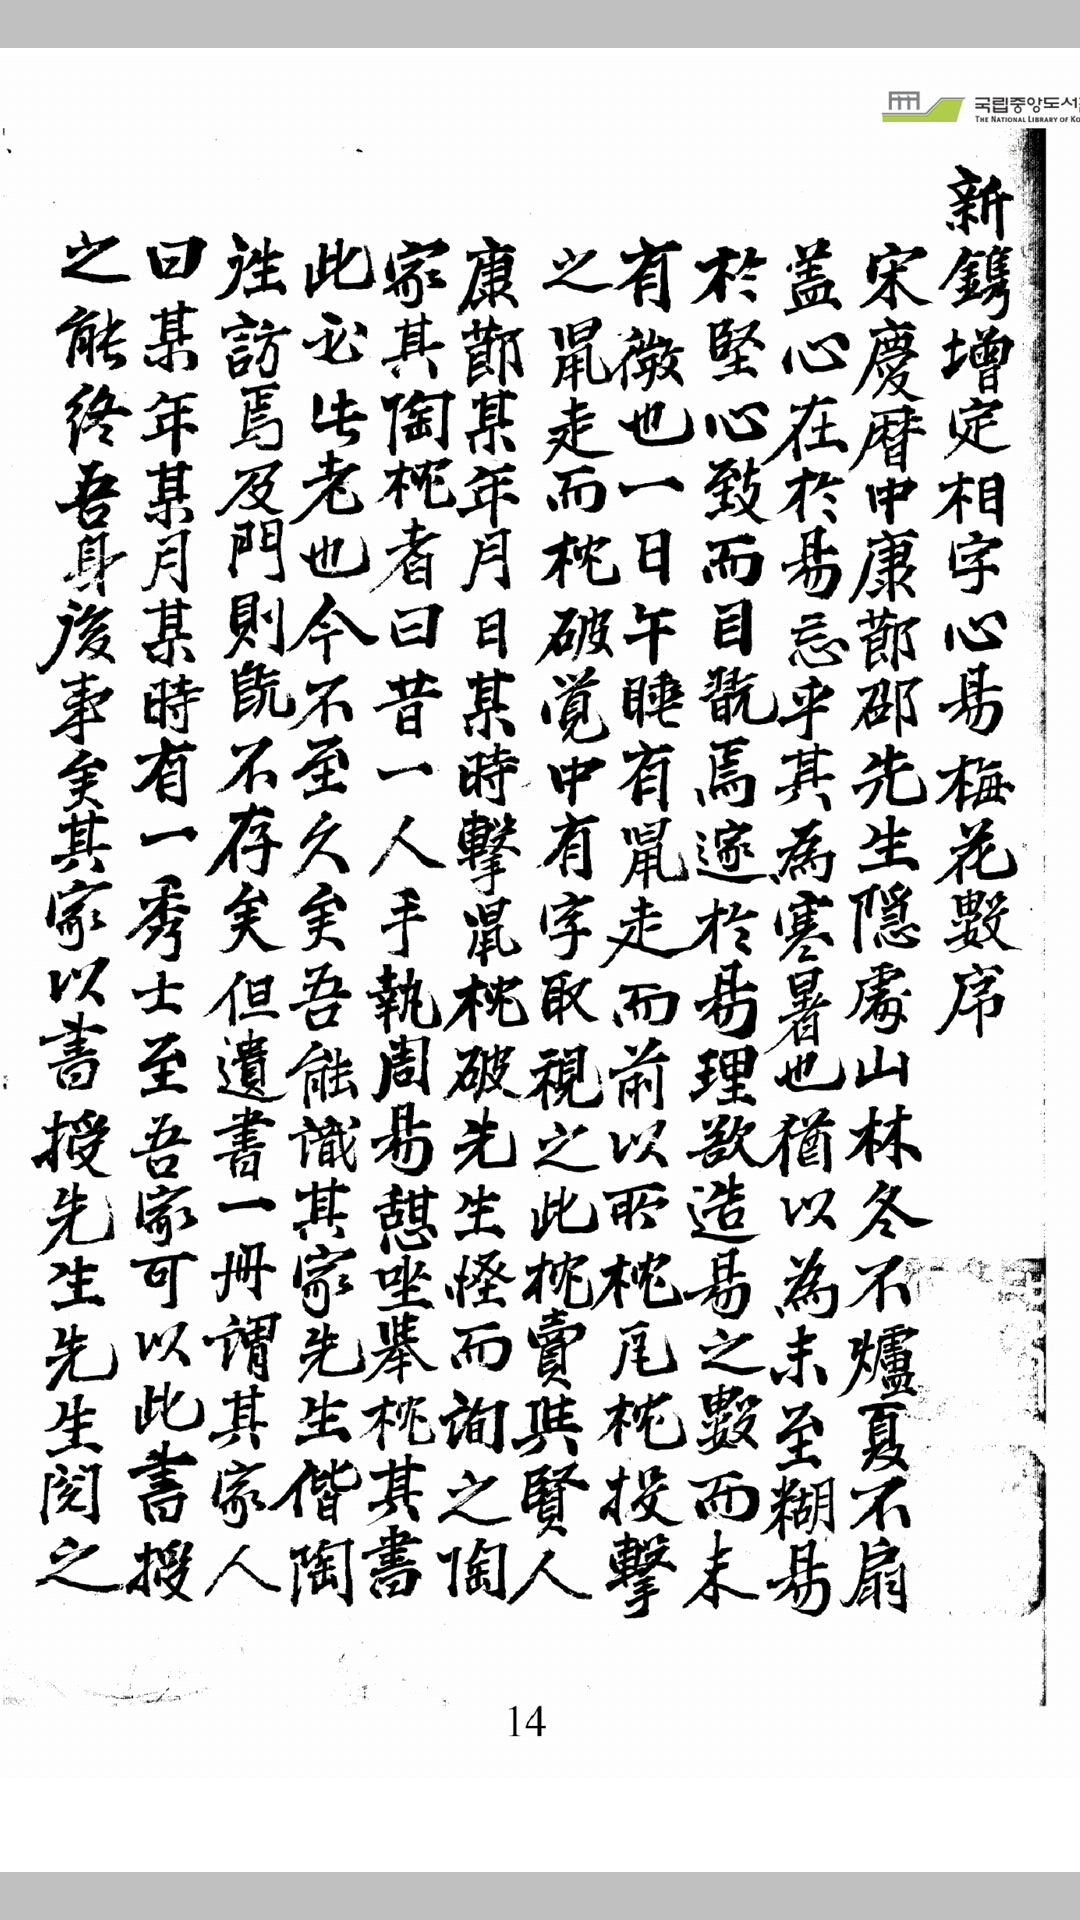 국립중앙도서
THE NATIONAL LIBRARY OF KO
新鐫增定相字心易梅花數序
宋慶曆中康節邵先生隱處山林冬不爐夏不扇
蓋心在於易忘乎其為寒暑也猶以為未至糊易
於堅心致而目翫焉邃於易理欲造易之數而未
有徵也一日午睡有鼠走而前以所枕瓦枕投擊
之鼠走而枕破覺中有字取視之此枕賣與賢人
康節某年月日某時擊鼠枕破先生怪而詢之陶
家其陶枕者曰昔一人手執周易憩坐舉枕其書
此必此老也今不至久矣吾能識其家先生偕陶
往訪焉及門則旣不存矣但遺書一冊謂其家人
曰某年某月某時有一秀士至吾家可以此書授
之能終吾身後事矣其家以書授先生先生閱之
14